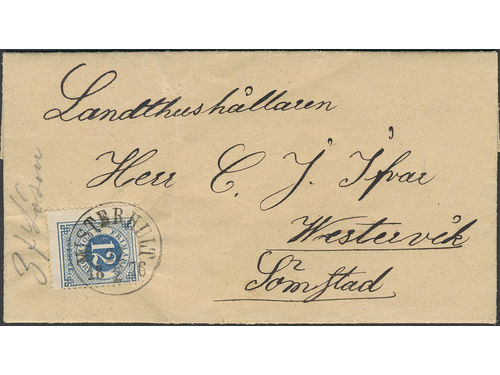 Landthushållaren
Herr C. J. Ifvar
Westervik
Sömstad
STERHULT
12